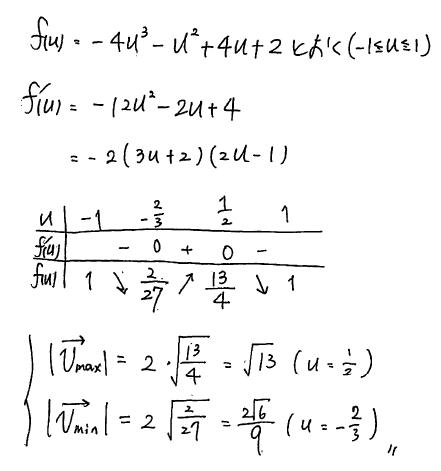 f(u) = -4u³ - u² + 4u + 2 とおく (-1≦u≦1)
f'(u) = -12u² - 2u + 4
= -2(3u+2)(2u-1)
u | -1 -2/3 1/2 1
f'(u) | - 0 + 0 -
f(u) | 1 ↘ 2/27 ↗ 13/4 ↘ 1
|v⃗max| = 2·√(13/4) = √13 (u = 1/2)
|v⃗min| = 2√(2/27) = 2√6/9 (u = -2/3) 〃